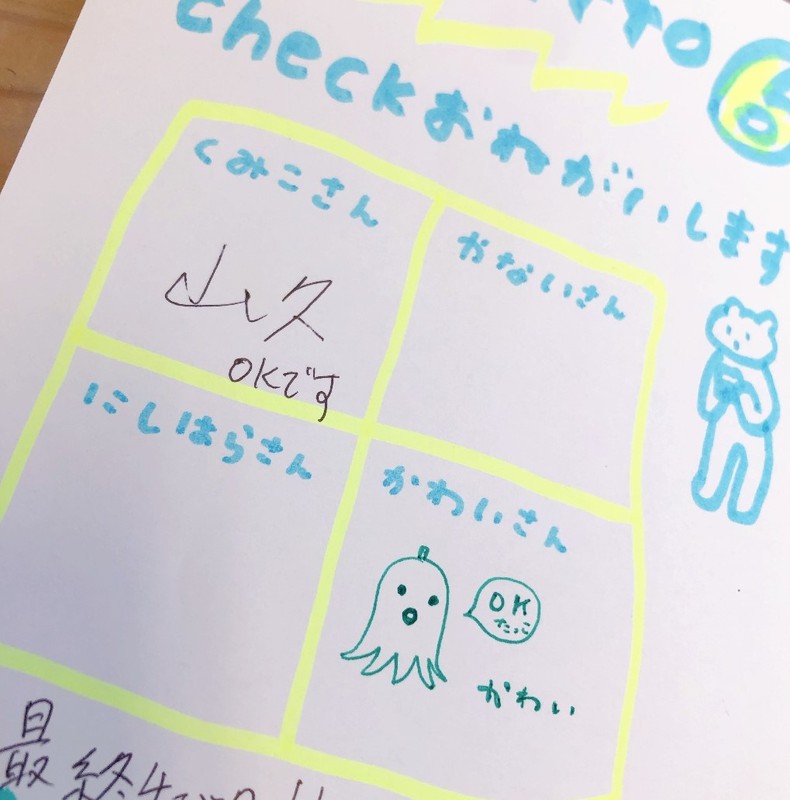 checkおねがいします
6
くみこさん
山久
OKです
かないさん
にしはらさん
かわいさん
OK
たっこ
かわい
最終チェック